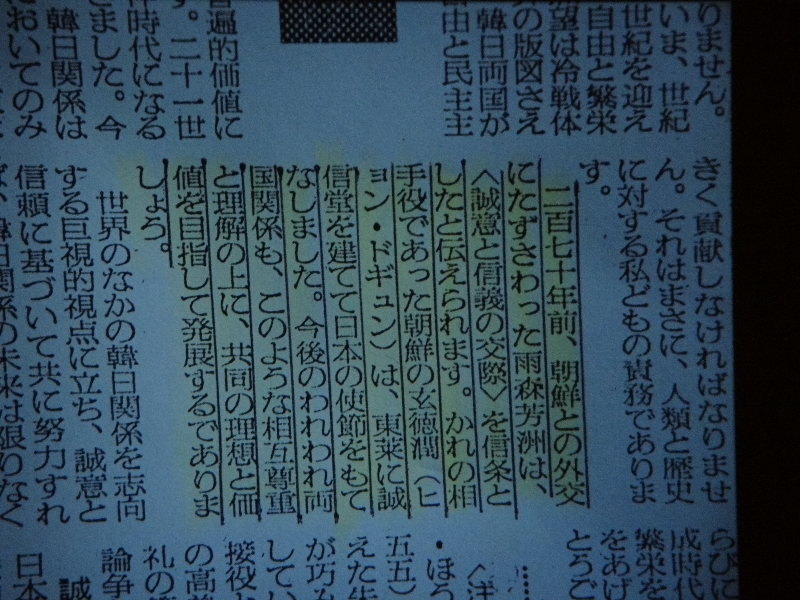 りません。
いま、世紀
世紀を迎え
自由と繁栄
望は冷戦体
の版図さえ
韓日両国が
由と民主主
普遍的価値に
す。二十一世
時代になる
きました。今
韓日関係は
においてのみ
きく貢献しなければなりませ
ん。それはまさに、人類と歴史
に対する私どもの責務でありま
す。
二百七十年前、朝鮮との外交
にたずさわった雨森芳洲は、
〈誠意と信義の交際〉を信条と
したと伝えられます。かれの相
手役であった朝鮮の玄徳潤(ヒ
ョン・ドギュン)は、東莱に誠
信堂を建てて日本の使節をもて
なしました。今後のわれわれ両
国関係も、このような相互尊重
と理解の上に、共同の理想と価
値を目指して発展するでありま
しょう。
世界のなかの韓日関係を志向
する巨視的視点に立ち、誠意と
信頼に基づいて共に努力すれ
ば、韓日関係の未来は限りなく
らびに
成時代
繁栄を
をあげ
とうご
・ほう
五五)
えた
が巧み
してい
接役
の高
礼の
論争
誠
日本